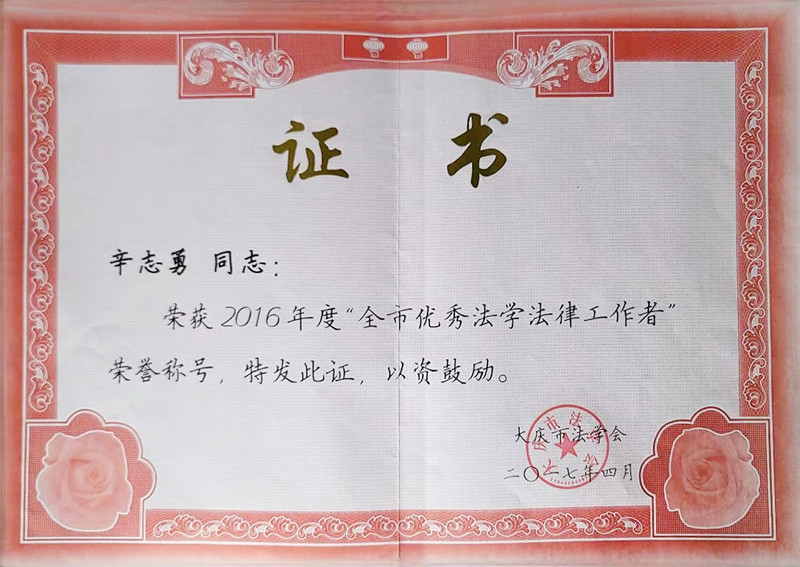 证书
辛志勇 同志：
荣获2016年度“全市优秀法学法律工作者”
荣誉称号，特发此证，以资鼓励。
大庆市法学会
二〇一七年四月
大庆市法学会